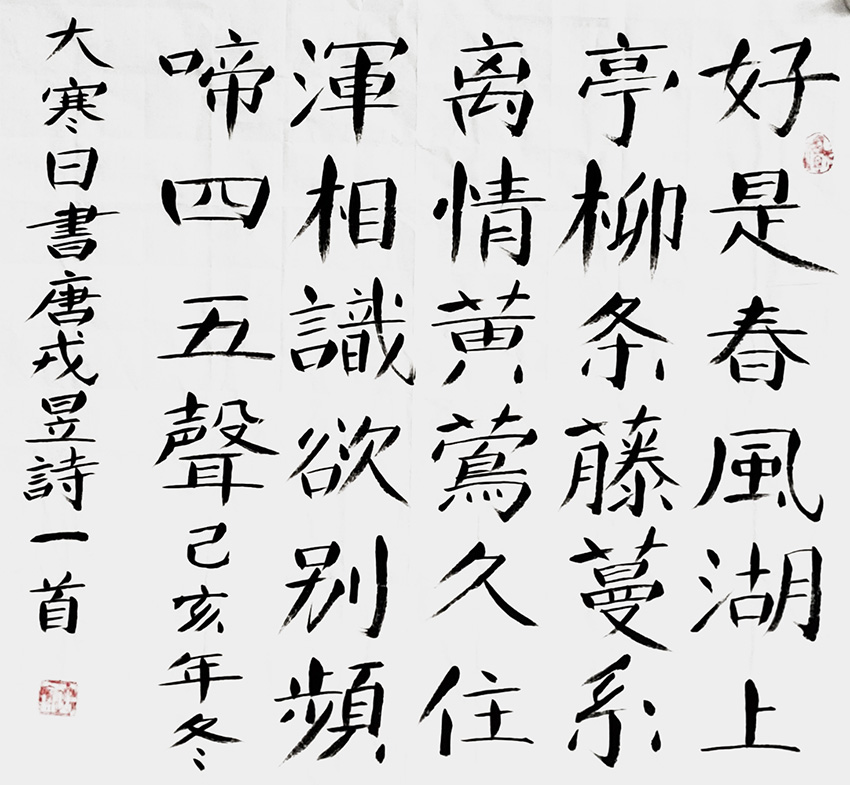 好是春風湖上
亭柳条藤蔓系
离情黄莺久住
渾相識欲别頻
啼四五聲己亥年冬
大寒日書唐戎昱詩一首